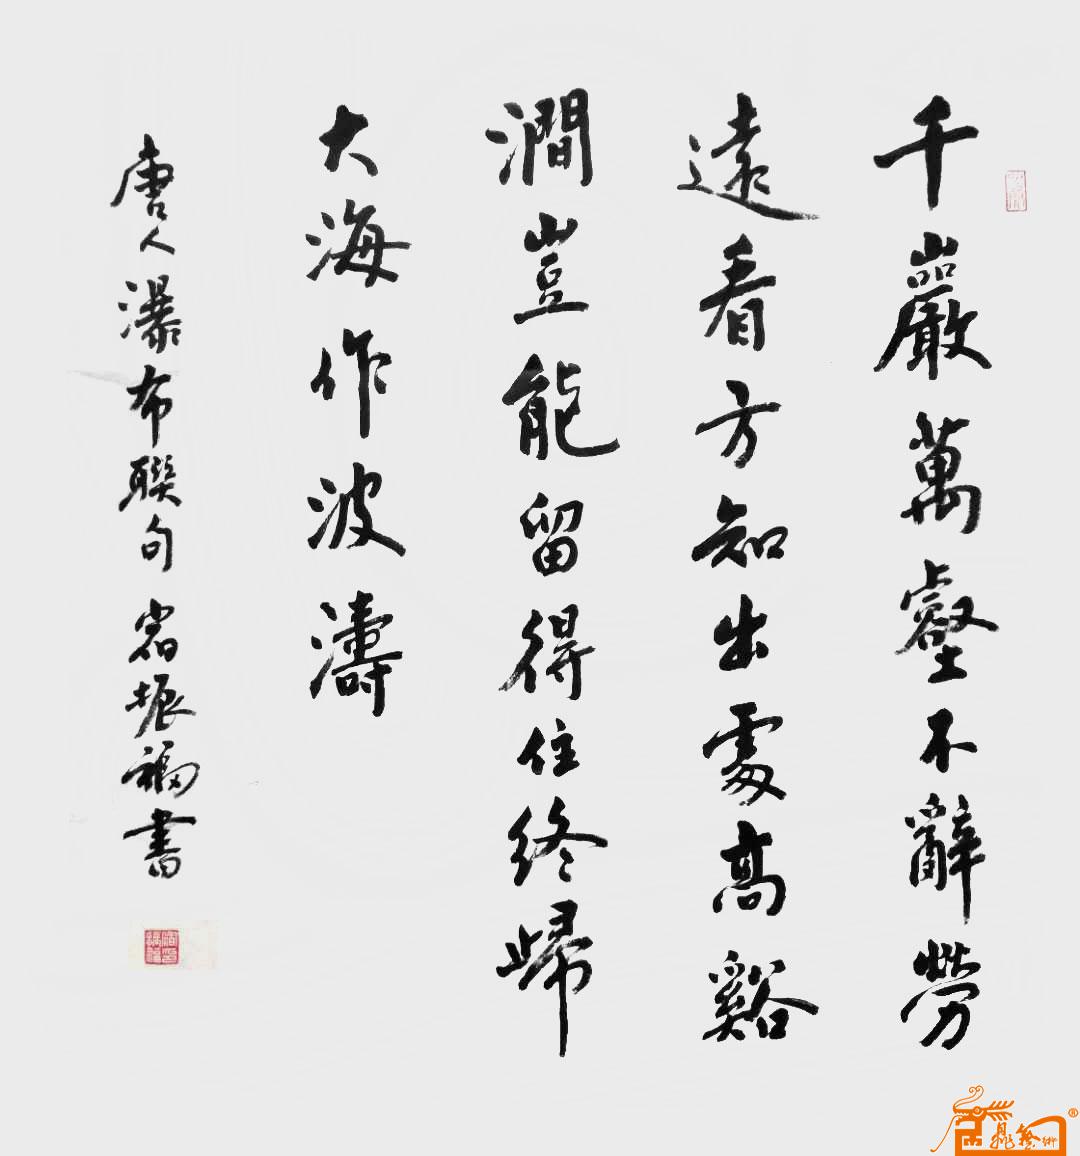 千巖萬壑不辭勞
遠看方知出處高谿
澗豈能留得住終歸
大海作波濤
唐人瀑布聯句 振福書